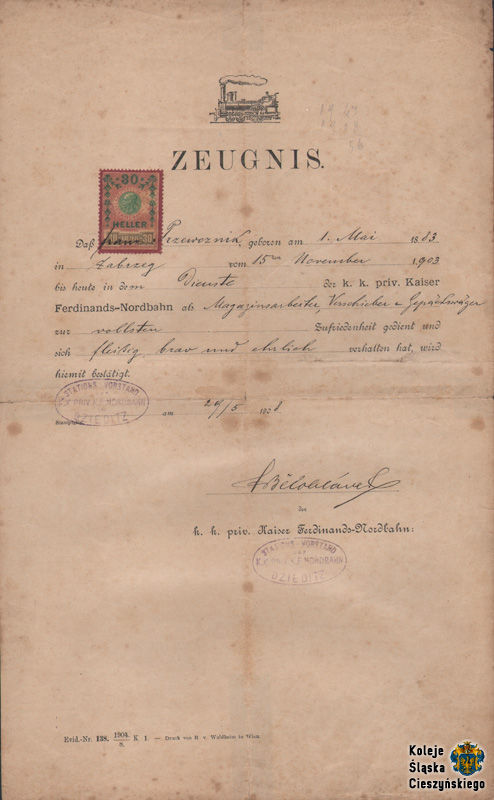 ZEUGNIS.
30
HELLER
30 30
Daß Przewoznik, geboren am 1. Mai 1883
in Zabrzeg vom 15ten November 1903
bis heute in dem Dienste der k. k. priv. Kaiser
Ferdinands-Nordbahn als Magazinsarbeiter, Verschieber u Gepäcksträger
zur vollsten Zufriedenheit gedient und
sich fleißig, brav und ehrlich verhalten hat, wird
hiemit bestätigt.
STATIONS-VORSTAND
DER
K.K. PRIV. K.F. NORDBAHN
DZIEDITZ
am 29/5 1908
Bĕlohlávek
der
k. k. priv. Kaiser Ferdinands-Nordbahn:
STATIONS-VORSTAND
DER
K.K. PRIV. K.F. NORDBAHN
DZIEDITZ
Evid.-Nr. 138. 1904/8. K 1. — Druck von R. v. Waldheim in Wien.
Koleje
Śląska
Cieszyńskiego